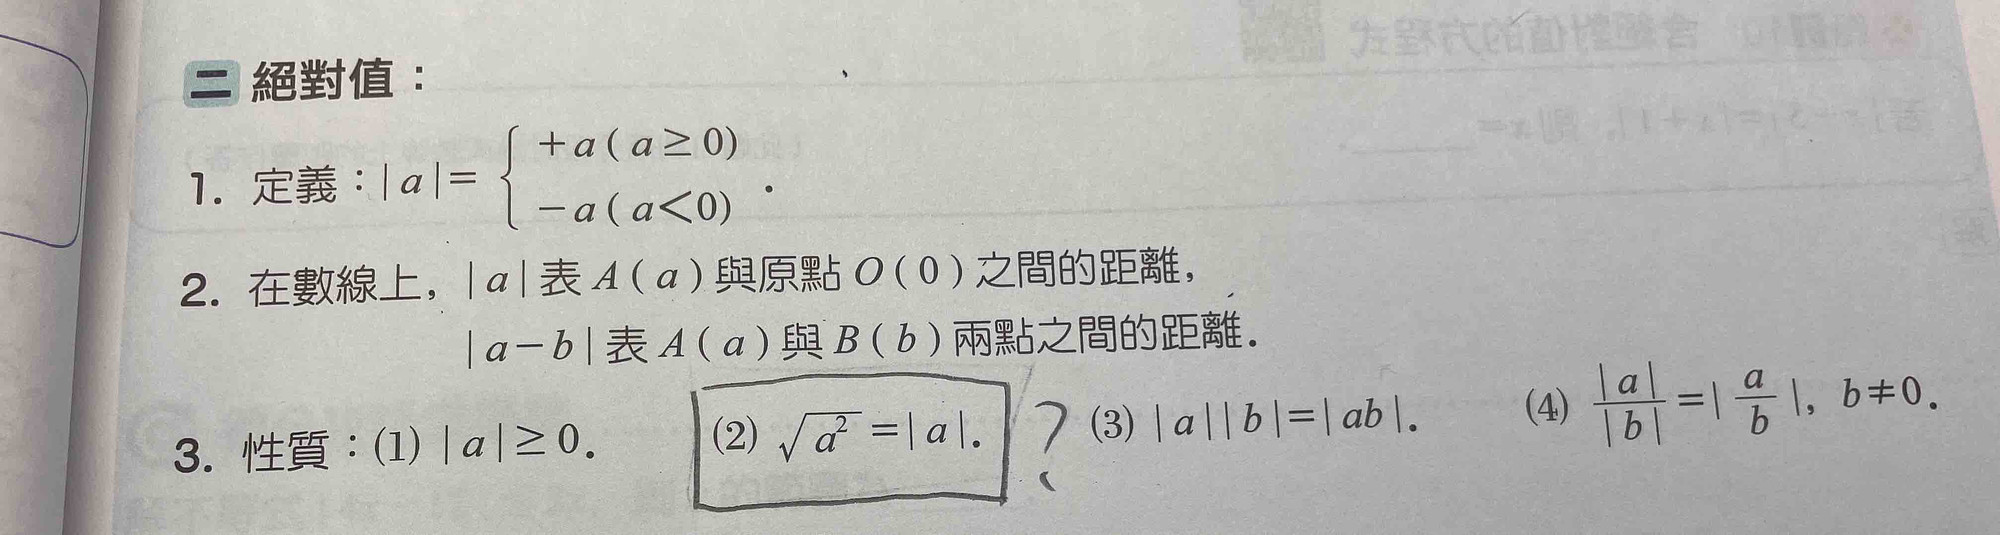 二 絕對值：
1. 定義：|a|= { +a ( a≥0)
−a ( a<0) .
2. 在數線上，|a|表 A ( a ) 與原點 O ( 0 ) 之間的距離，
|a−b|表 A ( a ) 與 B ( b ) 兩點之間的距離．
3. 性質：(1) |a|≥0． (2) √a² =|a|． ? (3) |a||b|=|ab|． (4) |a|/|b| =| a/b |，b≠0．